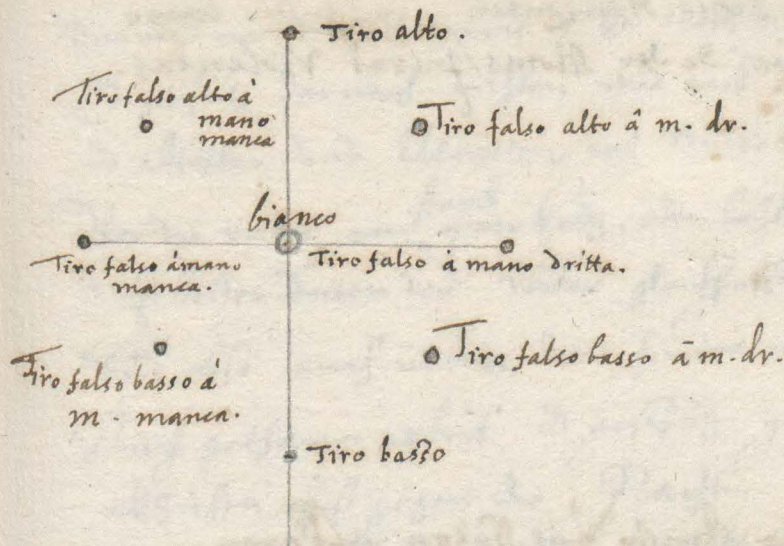 Tiro alto.
Tiro falso alto à
mano
manca
Tiro falso alto â m. dr.
bianco
Tiro falso àmano
manca.
Tiro falso à mano dritta.
Tiro falso basso à
m. manca.
Tiro falso basso ā m. dr.
Tiro basso